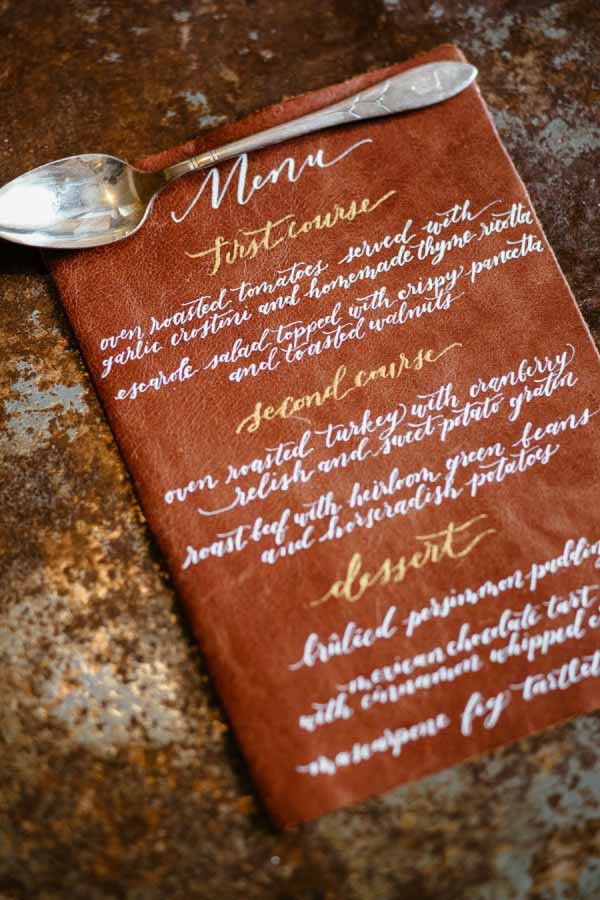 Menu
first course
oven roasted tomatoes served with
garlic crostini and homemade thyme ricotta
escarole salad topped with crispy pancetta
and toasted walnuts
second course
oven roasted turkey with cranberry
relish and sweet potato gratin
roast beef with heirloom green beans
and horseradish potatoes
dessert
brûléed persimmon pudding
mexican chocolate tart
with cinnamon whipped
mascarpone fig tartlet